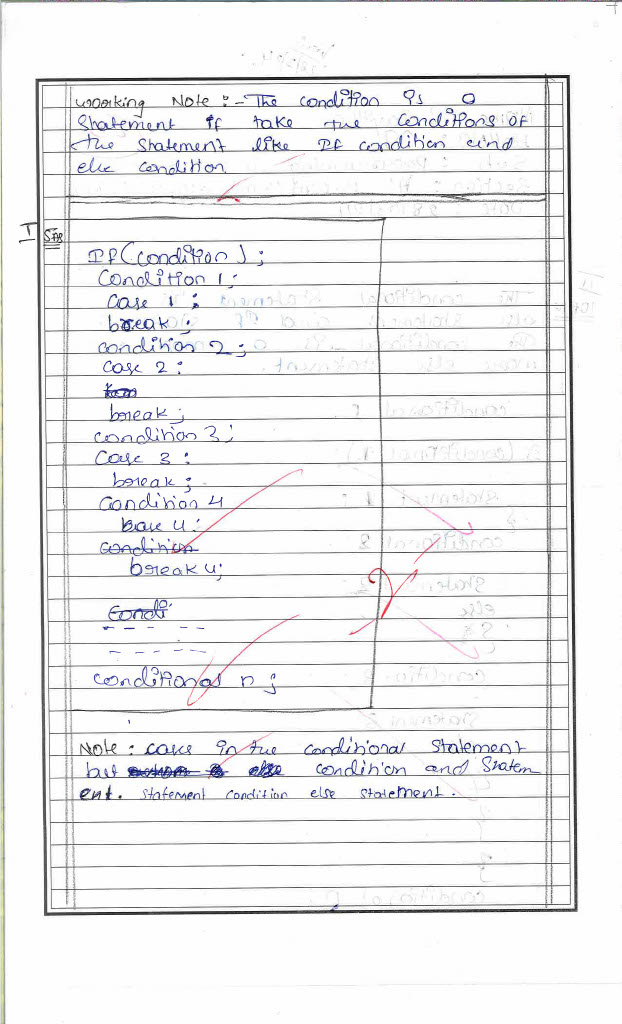 working Note :- The condition is a
Statement if take the conditions OF
the Statement like If condition and
else condition.
If (condition) ;
Condition 1 ;
Case 1 :
break ;
condition 2 ;
Case 2 :
break ;
condition 3 ;
Case 3 :
break ;
Condition 4
case 4 :
condition
break 4;
Condi
conditional n ;
Note : cases in the conditional statement
but condition and Statem
ent. statement condition else statement.